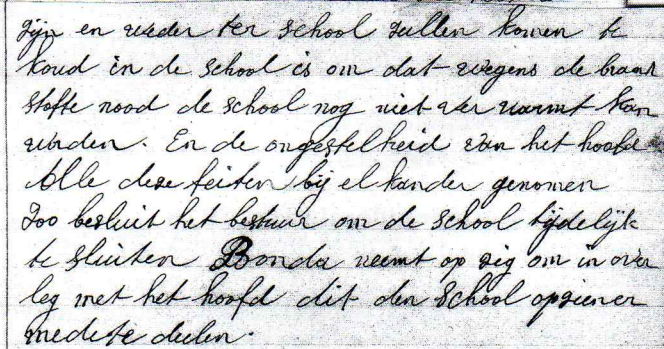 zijn en weder ter school zullen komen te
koud in de school is om dat wegens de brand
stoffe nood de school nog niet ver warmt kan
worden. En de ongestelheid van het hoofd
Alle deze feiten bij el kander genomen
Zoo besluit het bestuur om de school tijdelijk
te sluiten Bonda neemt op zig om in over
leg met het hoofd dit den School opziener
mede te deelen.